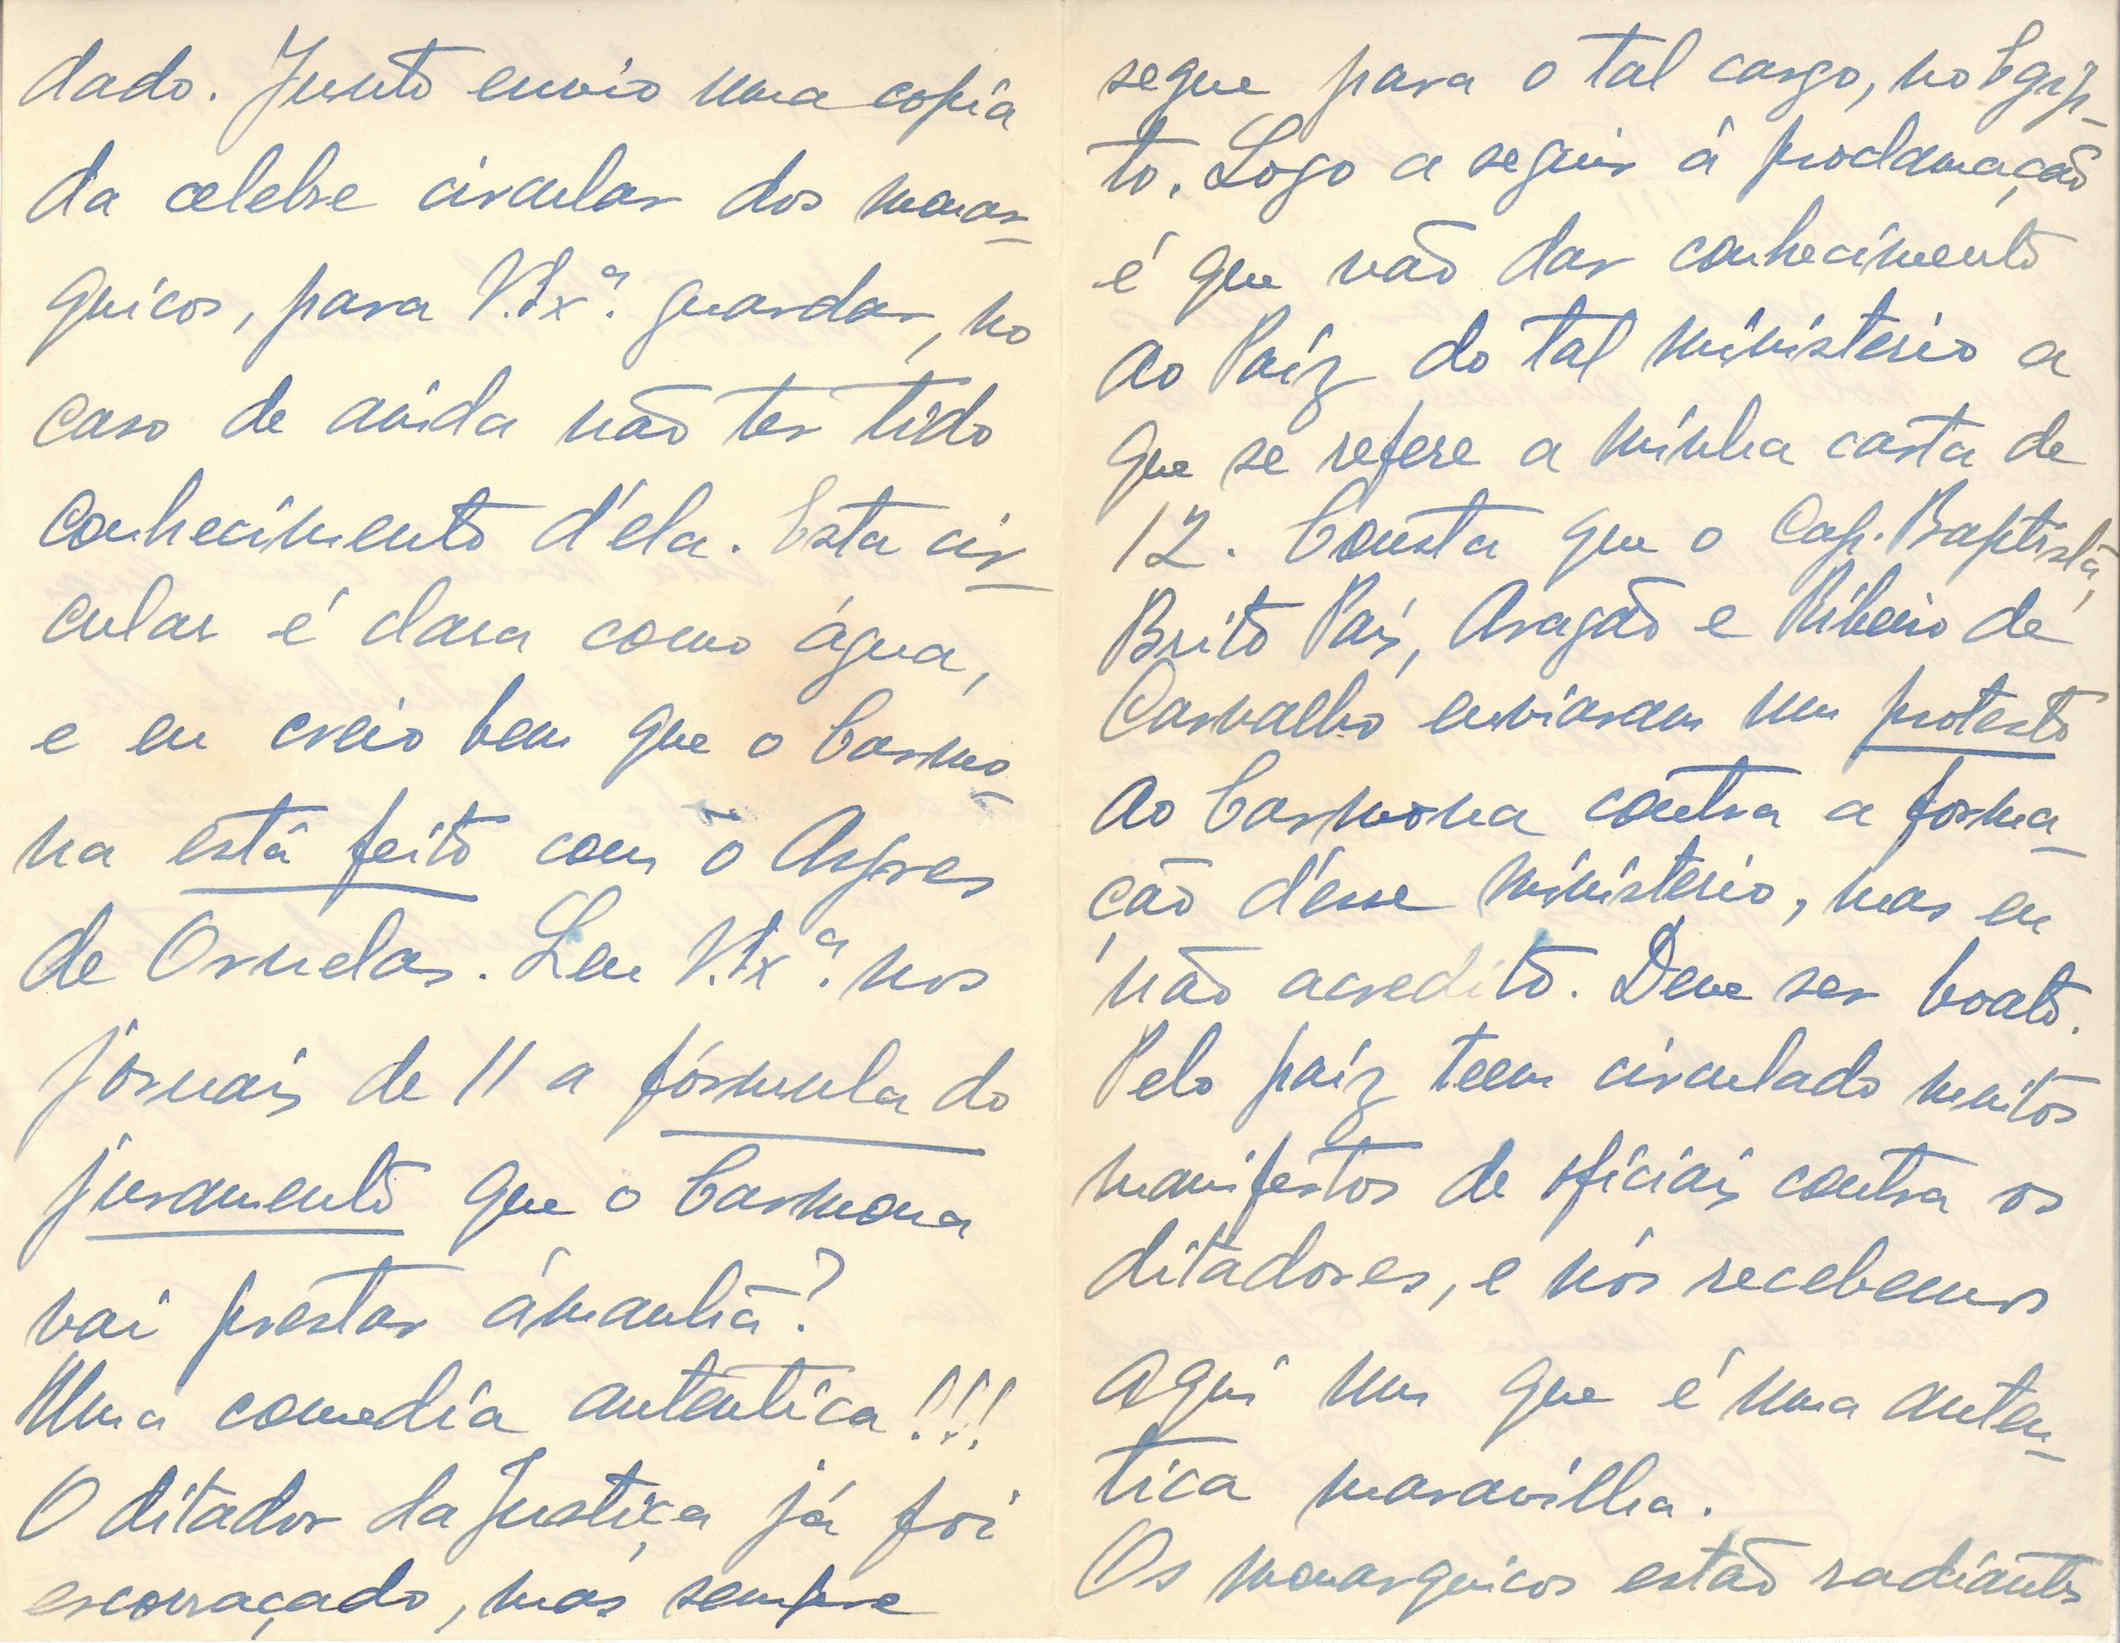 dado. Junto envio uma copia
da celebre circular dos monar-
quicos, para V. Exª. guardar, no
caso de ainda não ter tido
conhecimento d'ela. Esta cir-
cular é clara como água,
e eu creio bem que o Carmo-
na está feito com o Ayres
de Ornelas. Leu V. Exª. nos
jornais de 11 a fórmula do
juramento que o Carmona
vai prestar âmanhã?
Uma comedia autentica!!!
O ditador da Justiça já foi
escorraçado, mas sempre
segue para o tal cargo, no Egip-
to. Logo a seguir á proclamação
é que vão dar conhecimento
ao Paíz do tal ministerio a
que se refere a minha carta de
12. Consta que o Cap. Baptista,
Brito Pais, Aragão e Ribeiro de
Carvalho enviaram um protesto
ao Carmona contra a forma-
ção d'esse ministerio, mas eu
não acredito. Deve ser boato.
Pelo paíz teem circulado muitos
manifestos de oficiais contra os
ditadores, e nós recebemos
aqui um que é uma auten-
tica maravilha.
Os monarquicos estão radiantes